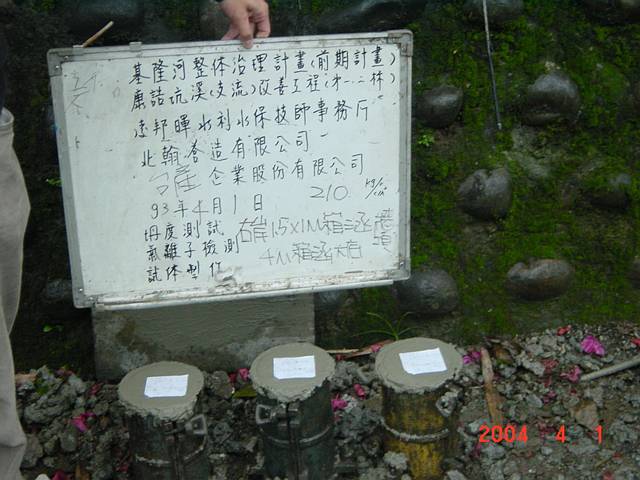 基隆河整体治理計畫(前期計畫)
康誥坑溪(支流)改善工程(木一、二林)
遠邦暉水利水保技師事務所
北翰營造有限公司
產企業股份有限公司
93年4月1日 210 kg/cm
坍度測試
氯離子檢測
試体製作
1.5x1M箱涵牆頂
4M箱涵大右
2004 4 1